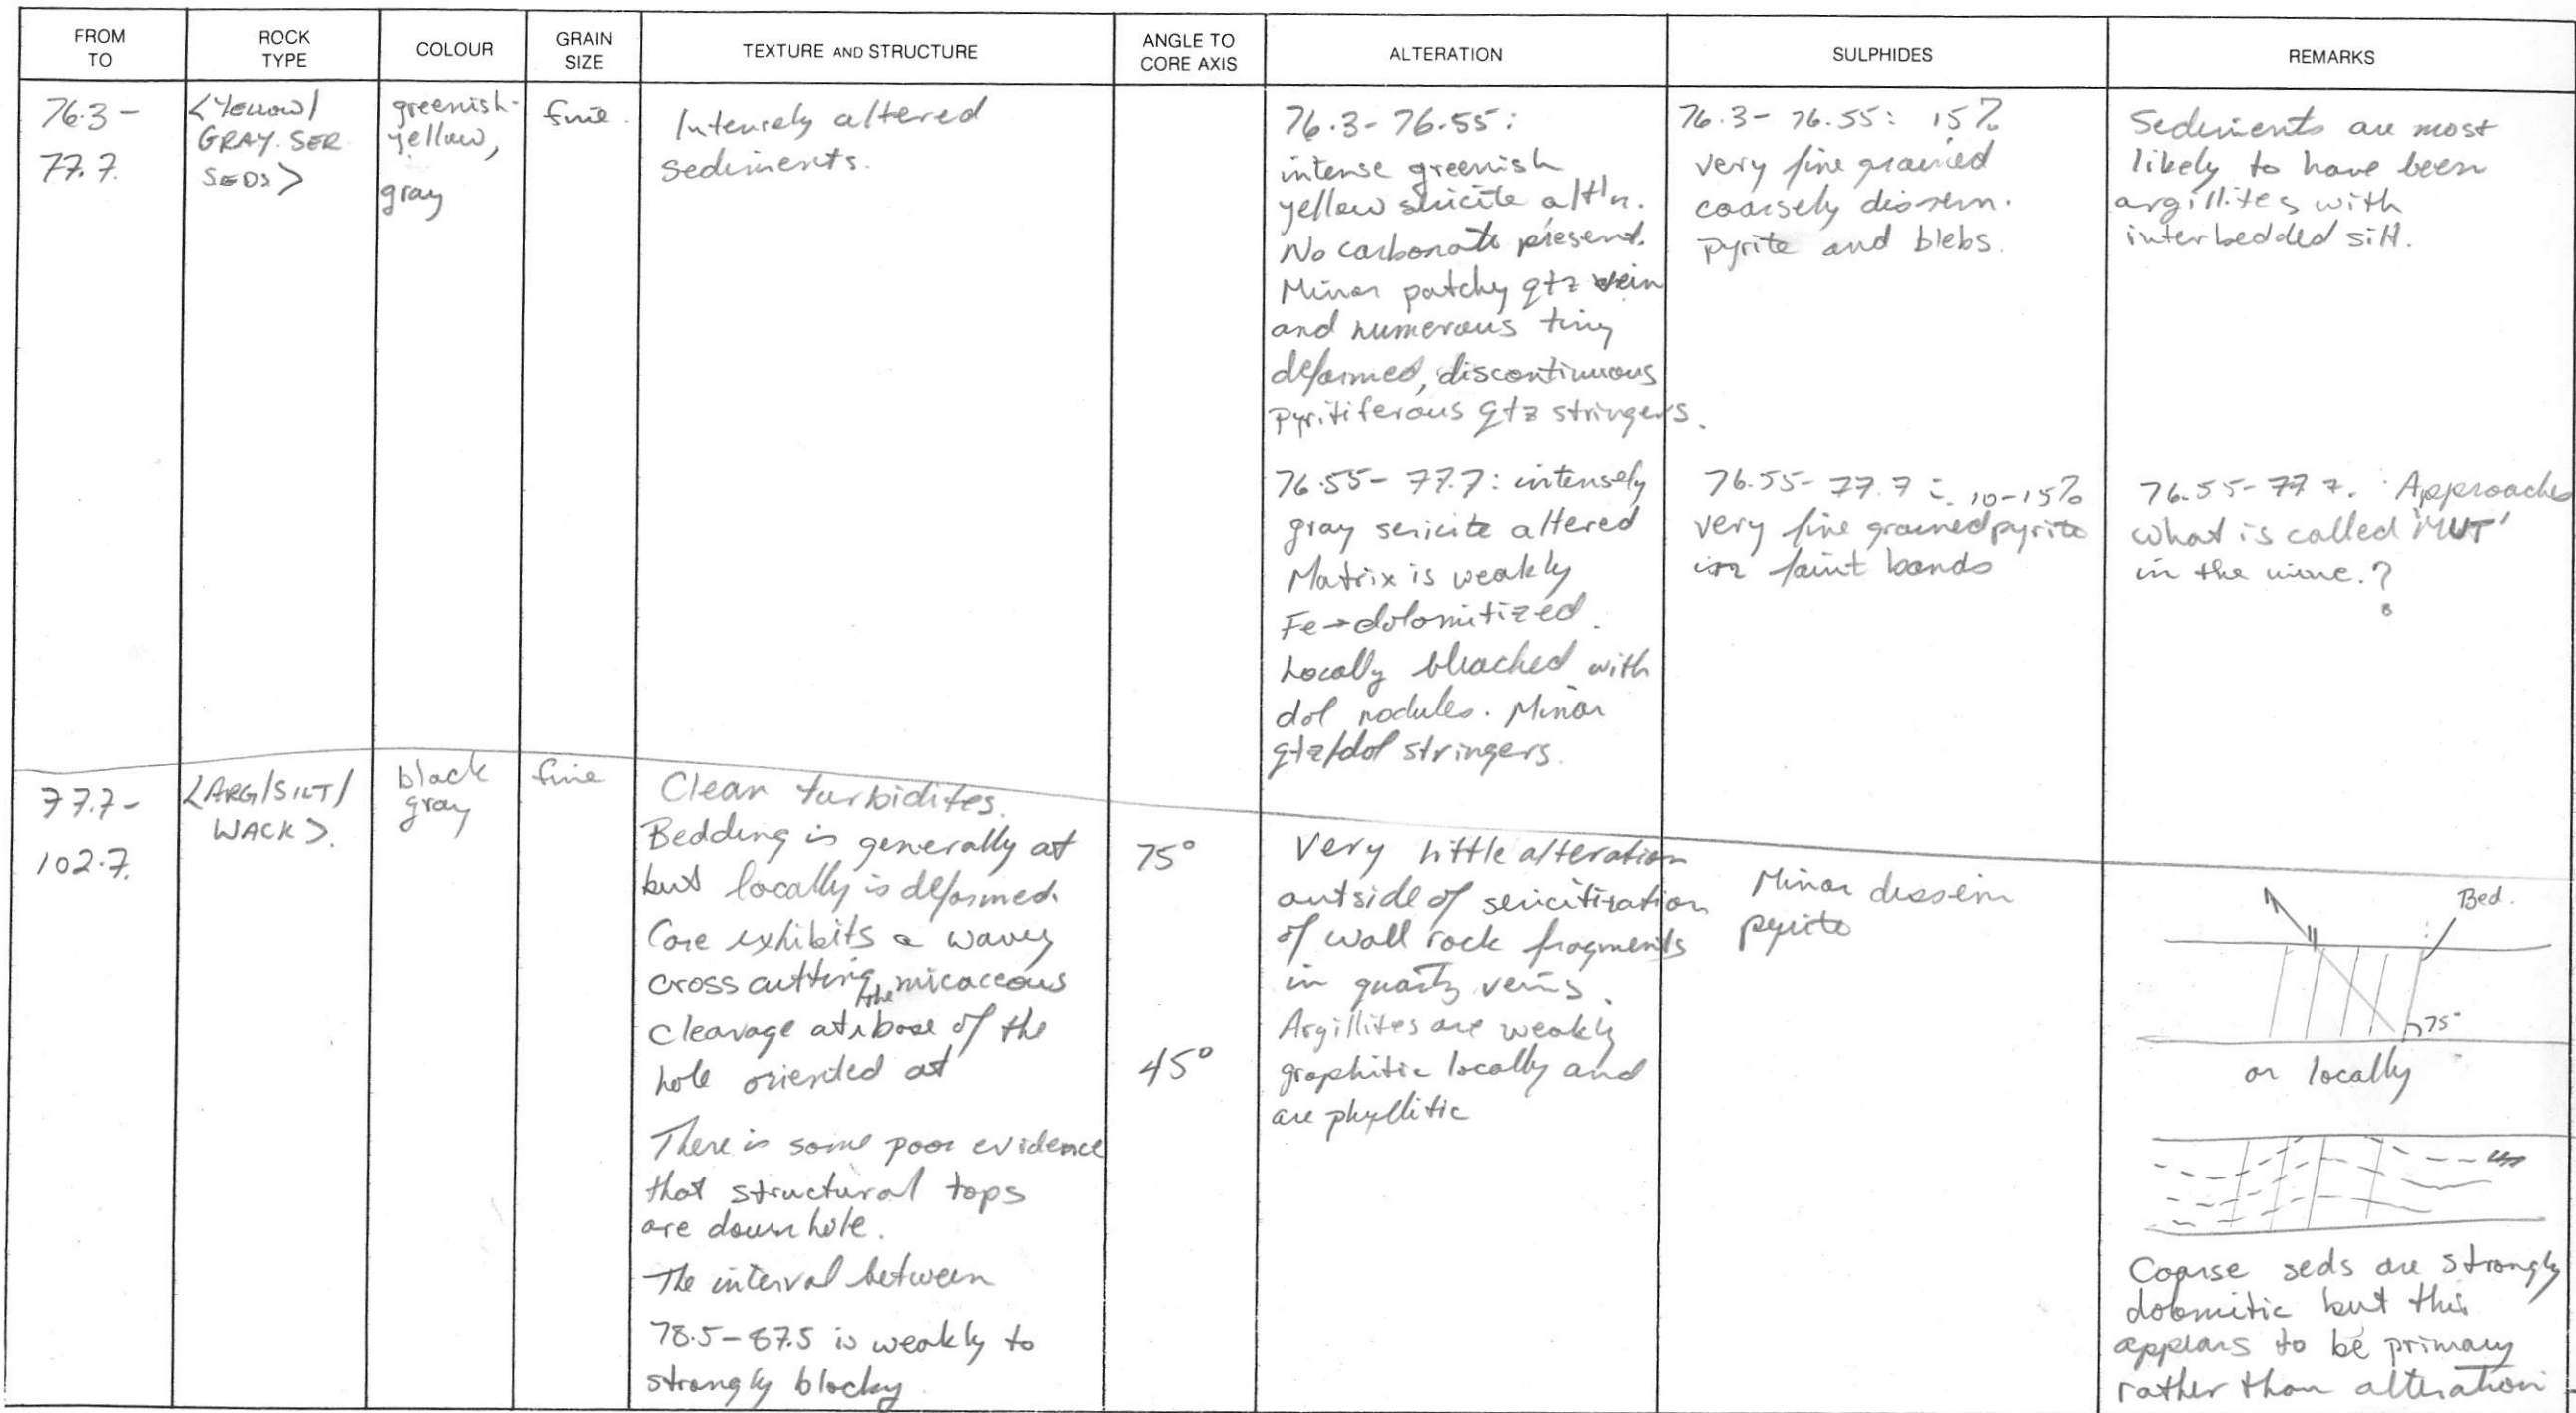 FROM
TO
ROCK
TYPE
COLOUR
GRAIN
SIZE
TEXTURE AND STRUCTURE
ANGLE TO
CORE AXIS
ALTERATION
SULPHIDES
REMARKS
76.3 -
77.7.
<YELLOW/
GRAY SER
SEDS>
greenish-
yellow,
gray
fine.
Intensely altered
sediments.
76.3 - 76.55:
intense greenish
yellow sericite alt'n.
No carbonate present.
Minor patchy qtz vein
and numerous tiny
deformed, discontinuous
pyritiferous qtz stringers.
76.55 - 77.7: intensely
gray sericite altered
Matrix is weakly
Fe→dolomitized.
Locally bleached with
dol nodules. Minor
qtz/dol stringers.
76.3 - 76.55: 15%
very fine grained
coarsely dissem.
pyrite and blebs.
76.55 - 77.7: 10-15%
very fine grained pyrite
in faint bands
Sediments are most
likely to have been
argillites with
interbedded silt.
76.55-77.7. Approaches
what is called 'MUT'
in the mine.?
77.7 -
102.7.
<ARG/SILT/
WACK>.
black
gray
fine
Clean turbidites.
Bedding is generally at
but locally is deformed.
Core exhibits a wavey
cross cutting micaceous
cleavage at the base of the
hole oriented at
There is some poor evidence
that structural tops
are down hole.
The interval between
78.5 - 87.5 is weakly to
strongly blocky.
75°
45°
Very little alteration
outside of sericitization
of wall rock fragments
in quartz veins.
Argillites are weakly
graphitic locally and
are phyllitic
Minor dissem
pyrite
Bed.
75°
or locally
Coarse seds are strongly
dolomitic but this
appears to be primary
rather than alteration